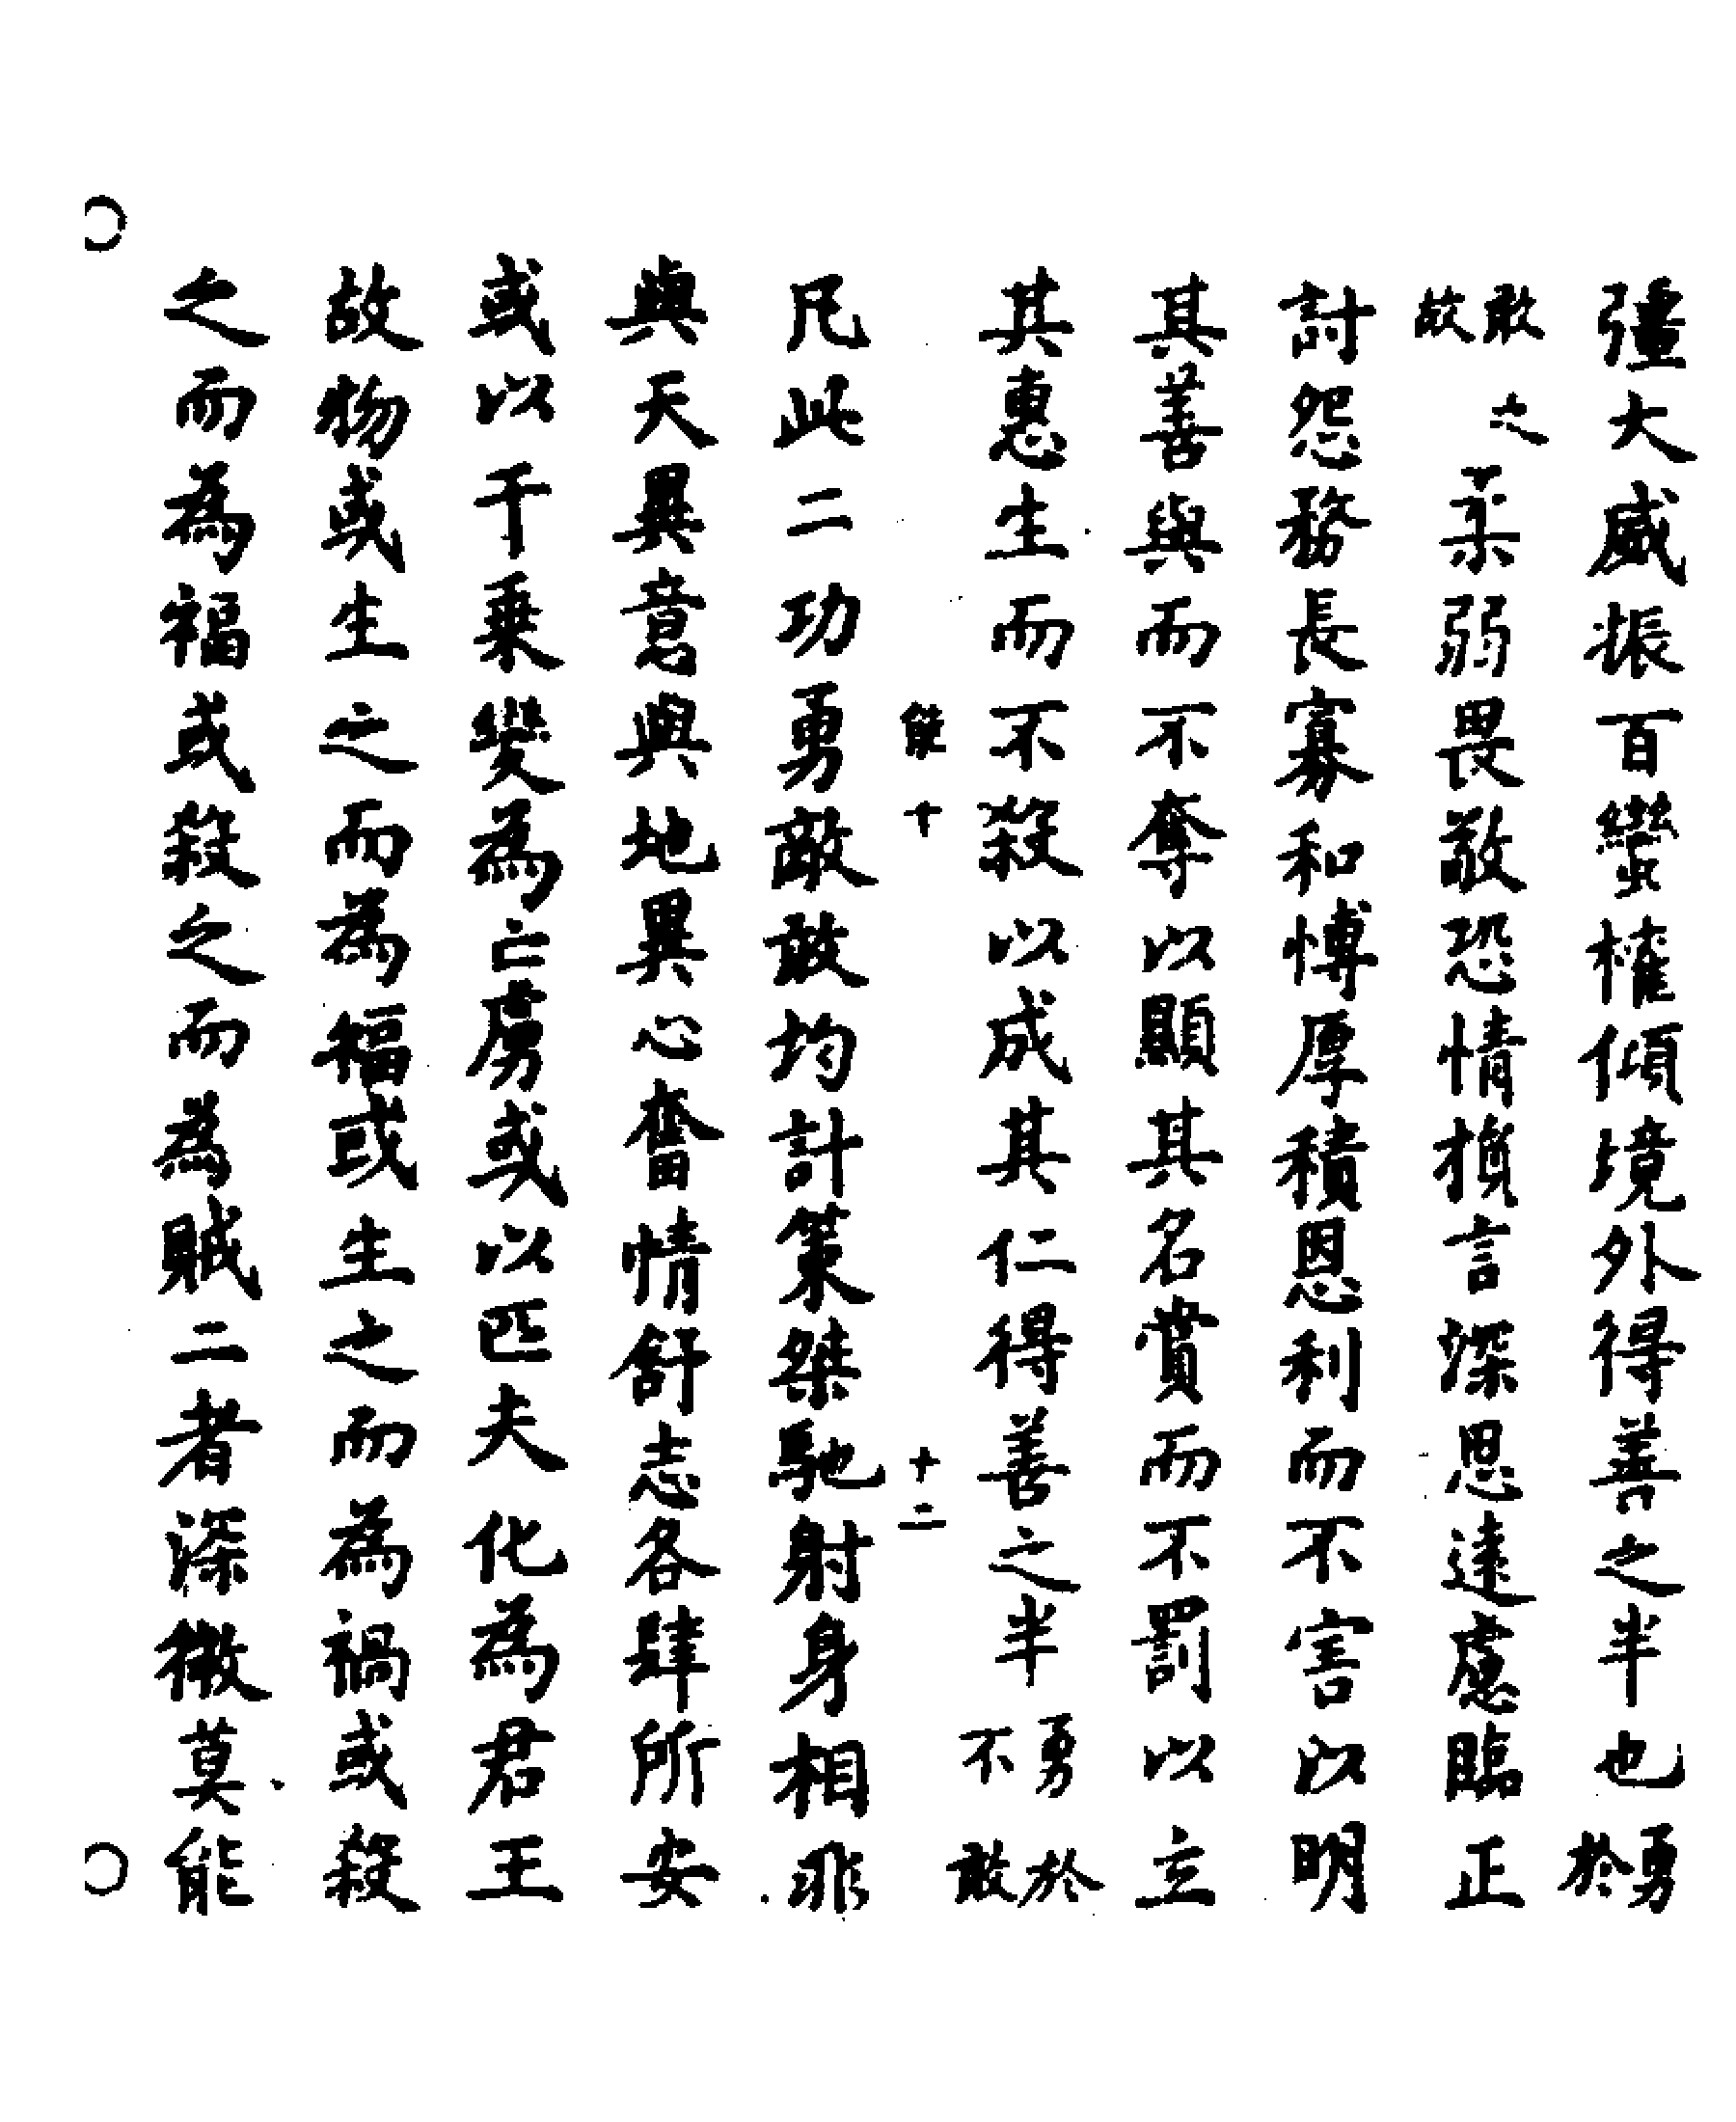 彊大威振百蠻權傾境外得善之半也勇於
敢之故柔弱畏敬恐情損言深思遠慮臨正
討怨務長寡和博厚積恩利而不害以明
其善與而不奪以顯其名賞而不罰以立
其惠生而不殺以成其仁得善之半勇於不敢
能十 十二
凡此二功勇敵敢均計策桀馳射身相非
與天異意與地異心奮情舒志各肆所安
或以千乘變為亡虜或以匹夫化為君王
故物或生之而為福或生之而為禍或殺
之而為福或殺之而為賊二者深微莫能